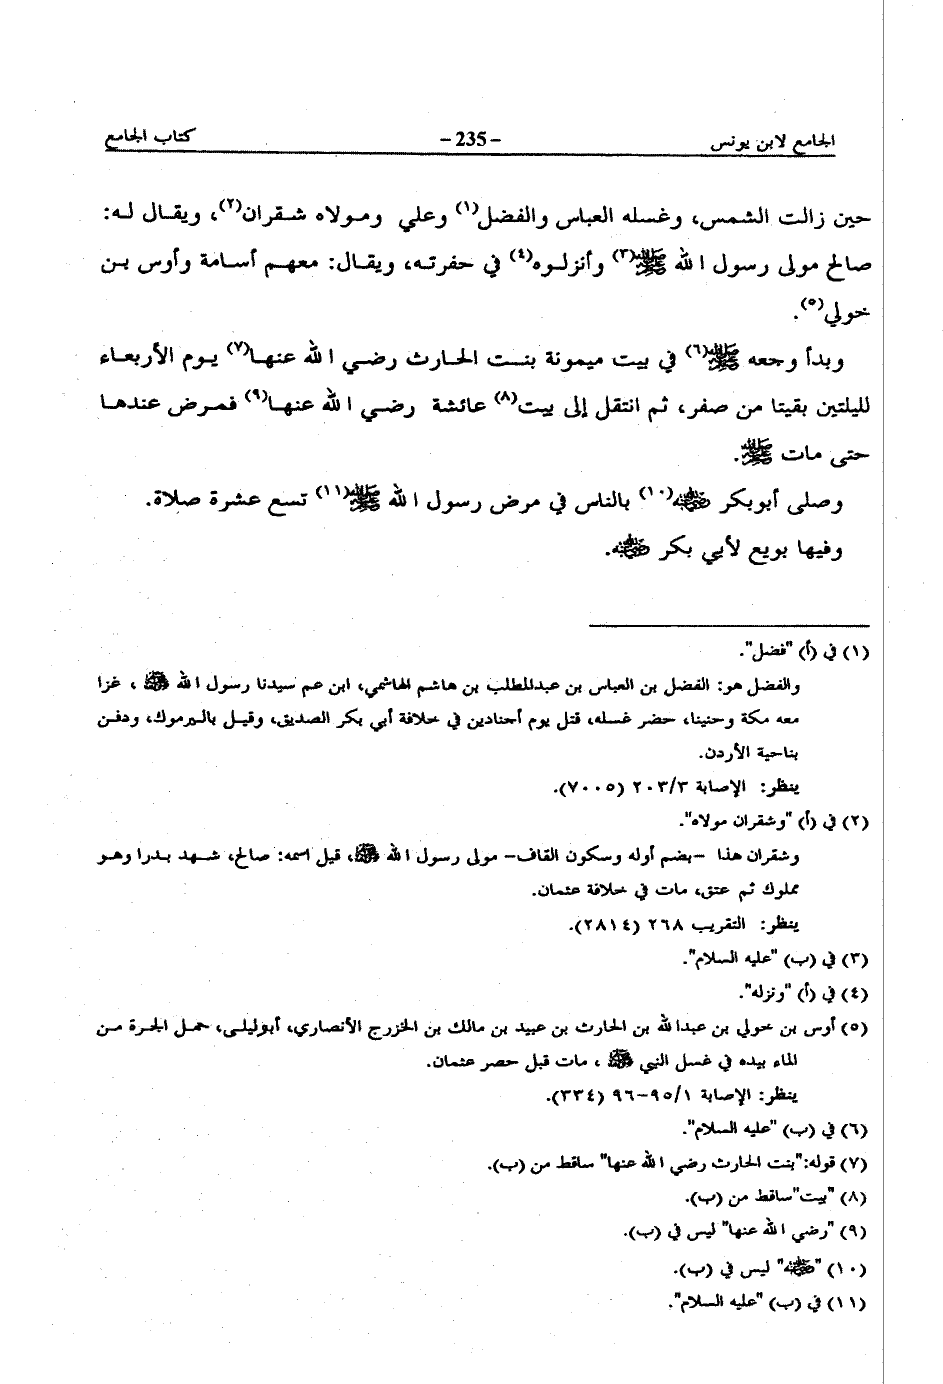 الجامع لابن يونس -235- كتاب الجامع
حين زالت الشمس، وغسله العباس والفضل(١) وعلي ومولاه شقران(٢)، ويقال له:
صالح مولى رسول الله ﷺ(٣) وأنزلوه(٤) في حفرته، ويقال: معهم أسامة وأوس بن
خولي(٥).
وبدأ وجعه ﷺ(٦) في بيت ميمونة بنت الحارث رضي الله عنها(٧) يوم الأربعاء
لليلتين بقيتا من صفر، ثم انتقل إلى بيت(٨) عائشة رضي الله عنها(٩) فمرض عندها
حتى مات ﷺ.
وصلى أبوبكر رضي الله عنه(١٠) بالناس في مرض رسول الله ﷺ(١١) تسع عشرة صلاة.
وفيها بويع لأبي بكر رضي الله عنه.
(١) في (أ) "فضل".
والفضل هو: الفضل بن العباس بن عبدالمطلب بن هاشم الهاشمي، ابن عم سيدنا رسول الله ﷺ، غزا
معه مكة وحنينا، حضر غسله، قتل يوم أجنادين في خلافة أبي بكر الصديق، وقيل باليرموك، ودفن
بناحية الأردن.
ينظر: الإصابة ٢٠٣/٣ (٧٠٠٥).
(٢) في (أ) "وشقران مولاه".
وشقران هذا -بضم أوله وسكون القاف- مولى رسول الله ﷺ، قيل اسمه: صالح، شهد بدرا وهو
مملوك ثم عتق، مات في خلافة عثمان.
ينظر: التقريب ٢٦٨ (٢٨١٤).
(٣) في (ب) "عليه السلام".
(٤) في (أ) "ونزله".
(٥) أوس بن خولي بن عبدالله بن الحارث بن عبيد بن مالك بن الخزرج الأنصاري، أبوليلى، حمل الجرة من
الماء بيده في غسل النبي ﷺ، مات قبل حصر عثمان.
ينظر: الإصابة ٩٥/١-٩٦ (٣٣٤).
(٦) في (ب) "عليه السلام".
(٧) قوله:"بنت الحارث رضي الله عنها" ساقط من (ب).
(٨) "بيت"ساقط من (ب).
(٩) "رضي الله عنها" ليس في (ب).
(١٠) "رضي الله عنه" ليس في (ب).
(١١) في (ب) "عليه السلام".